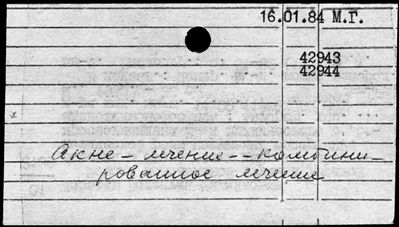 16.01.84 М.Г.
42943
42944
Акне – лечение -- комбини-
рованное лечение